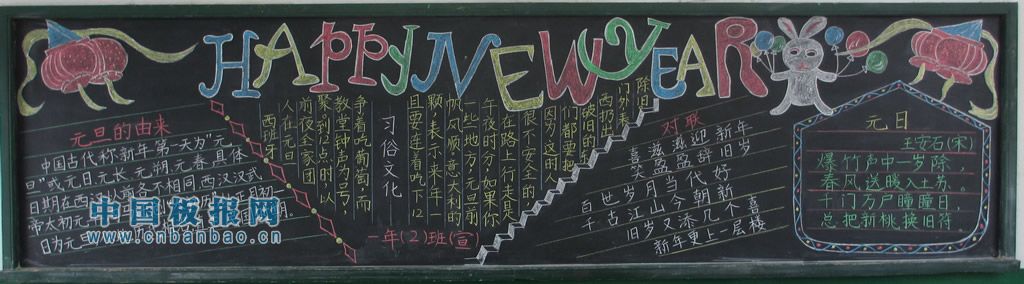 HAPPY NEW YEAR
元旦的由来
中国古代称新年第一天为"元
旦"或元日元长,元朔,元春,具体
日期在西汉以前各不相同,西汉汉武
帝太初元
日为元
中国板报网
www.cnbanbao.cn
习俗文化
西班牙
人在元旦
前夜全家团
聚,到12点时,以
教堂钟声为号,
争着吃葡萄,而
且要连着吃下12
颗,表示来年一
帆风顺,意大利的
一些地方,元旦前
午夜时分,如果你
在路上行走是
很不安全的
因为这的人
们都要把
破旧的
西扔出
门外,表
除旧
一年(2)班(宣)
对联
喜滋滋迎新年
笑盈盈辞旧岁
百世岁月当代好
千古江山今朝新
旧岁又添几个喜
新年更上一层楼
元日
王安石(宋)
爆竹声中一岁除,
春风送暖入土苏。
千门万户曈曈日,
总把新桃换旧符